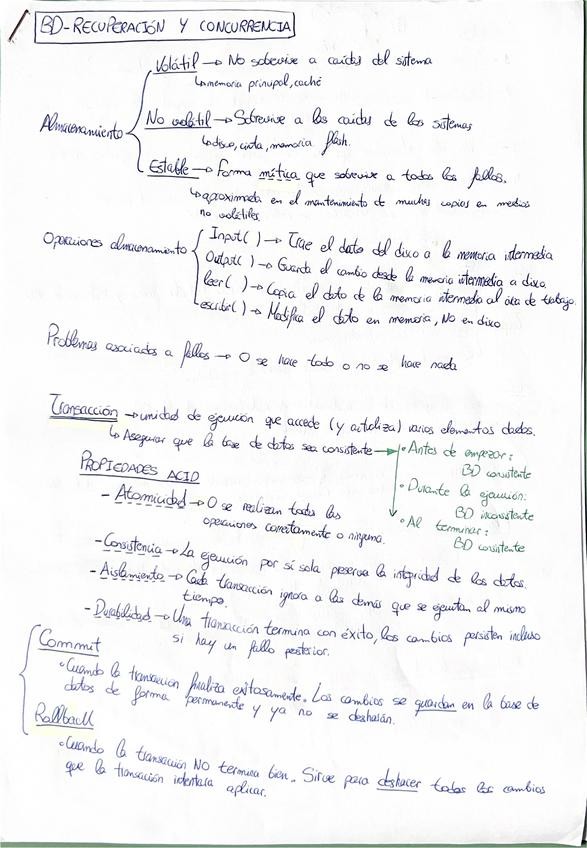 BD-RECUPERACIÓN Y CONCURRENCIA
Almacenamiento
Volátil → No sobrevive a caídas del sistema
↳ memoria principal, caché
No volátil → Sobrevive a las caídas de los sistemas
↳ disco, cinta, memoria flash.
Estable → Forma mítica que sobrevive a todos los fallos.
↳ aproximada en el mantenimiento de muchas copias en medios
no volátiles
Operaciones almacenamiento
Input( ) → Trae el dato del disco a la memoria intermedia
Output( ) → Guarda el cambio desde la memoria intermedia a disco
leer( ) → Copia el dato de la memoria intermedia al área de trabajo.
escribir( ) → Modifica el dato en memoria, No en disco
Problemas asociados a fallos → O se hace todo o no se hace nada
Transacción → unidad de ejecución que accede (y actualiza) varios elementos dados.
↳ Asegurar que la base de datos sea consistente →
• Antes de empezar:
BD consistente
• Durante la ejecución:
BD inconsistente
• Al terminar:
BD consistente
PROPIEDADES ACID
- Atomicidad → O se realizan todas las
operaciones correctamente o ninguna.
- Consistencia → La ejecución por sí sola preserva la integridad de los datos.
- Aislamiento → Cada transacción ignora a las demás que se ejecutan al mismo
tiempo.
- Durabilidad → Una transacción termina con éxito, los cambios persisten incluso
si hay un fallo posterior.
Commit
• Cuando la transacción finaliza exitosamente. Los cambios se guardan en la base de
datos de forma permanente y ya no se desharán.
Rollback
• Cuando la transacción NO termina bien. Sirve para deshacer todos los cambios
que la transacción intentara aplicar.